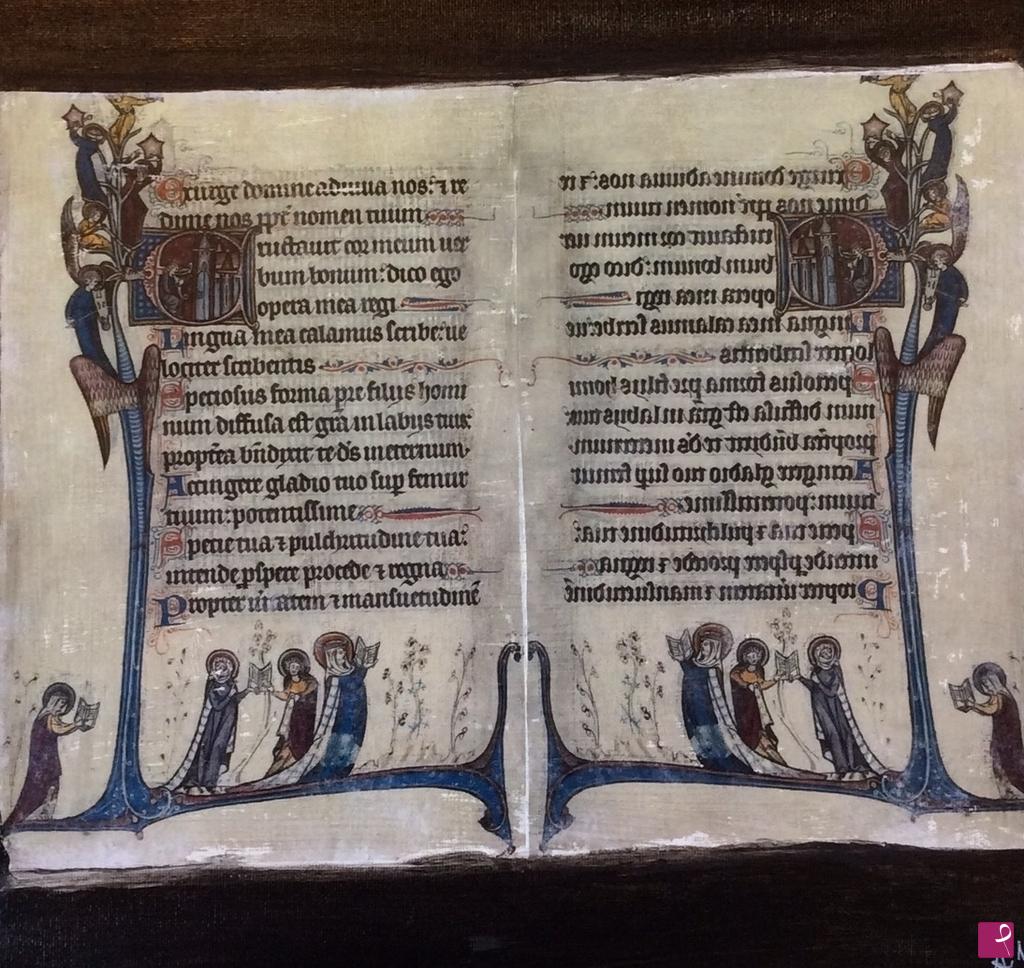 Exurge domine adiuua nos: ⁊ re
dime nos ppt̄ nomen tuum
Eructauit cor meum uer
bum bonum: dico ego
opera mea regi
Lingua mea calamus scribe: ue
lociter scribentis
Speciosus forma pre filiis homi
num diffusa est gr̄a in labiis tuis
propt̄ea bn̄dixit te ds̄ in eternum
Accingere gladio tuo sup femur
tuum: potentissime
Specie tua ⁊ pulchritudine tua:
intende pspere procede ⁊ regna
Propter ūitatem ⁊ mansuetudinē
Exurge domine adiuua nos: ⁊ re
dime nos ppt̄ nomen tuum
Eructauit cor meum uer
bum bonum: dico ego
opera mea regi
Lingua mea calamus scribe: ue
lociter scribentis
Speciosus forma pre filiis homi
num diffusa est gr̄a in labiis tuis
propt̄ea bn̄dixit te ds̄ in eternum
Accingere gladio tuo sup femur
tuum: potentissime
Specie tua ⁊ pulchritudine tua:
intende pspere procede ⁊ regna
Propter ūitatem ⁊ mansuetudinē